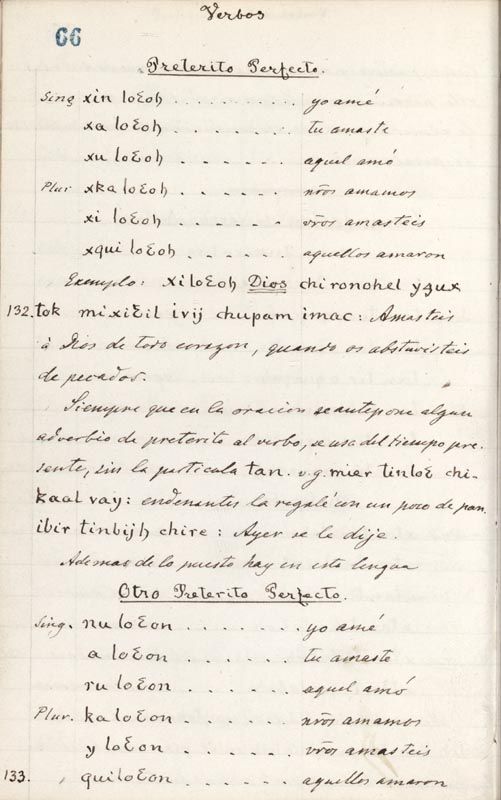 Verbos
66
Preterito Perfecto.
Sing xin loƐoh . . . . . . . . . . yo amé
xa loƐoh . . . . . . tu amaste
xu loƐoh . . . . . . aquel amó
Plur xka loƐoh . . . . . . nr̃os amamos
xi loƐoh . . . . . vr̃os amasteis
xqui loƐoh . . . . . aquellos amaron
Exemplo: xiloƐoh Dios chironohel yꜫux
132. tok mixiƐil ivij chupam imac: Amasteis
à Dios de todo corazon, quando os abstuvisteis
de pecados.
Siempre que en la oracion se antepone algun
adverbio de preterito al verbo, se usa del tiempo pre-
sente, sin la particula tan. v.g. mier tinloƐ chi-
kaal vay: endenantes la regalé con un poco de pan.
ibir tinbijh chire: Ayer se le dije.
Ademas de lo puesto hay en esta lengua
Otro Preterito Perfecto.
Sing. nu loƐon . . . . . . yo amé
a loƐon . . . . . . tu amaste
ru loƐon . . . . . . aquel amó
Plur. ka loƐon . . . . . . nr̃os amamos
y loƐon . . . . . . vr̃os amasteis
133. quiloƐon . . . . . . aquellos amaron